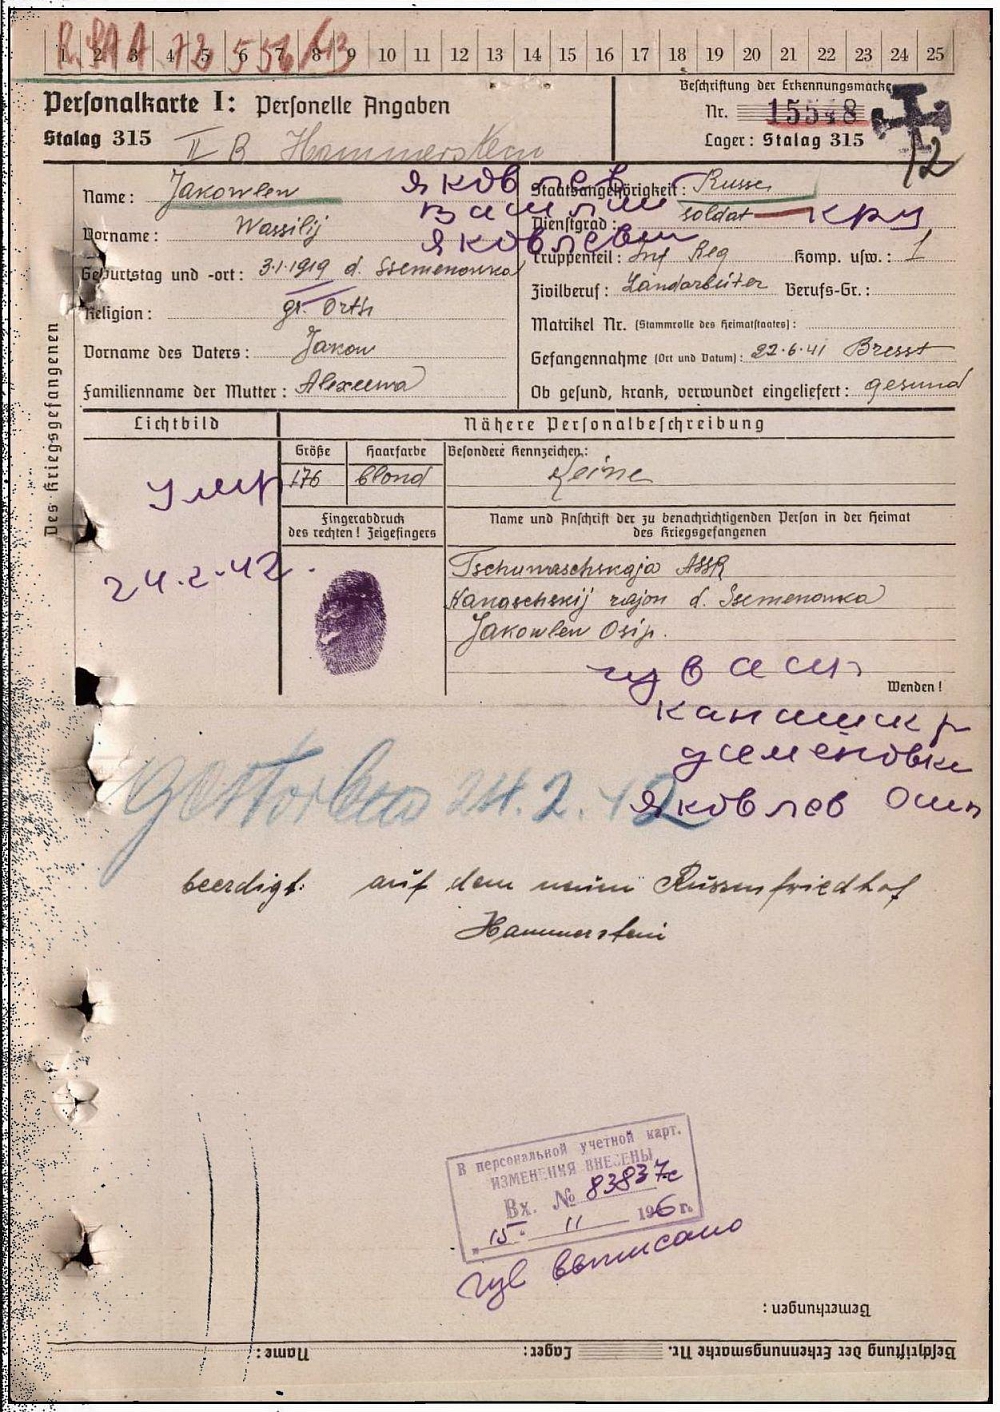 1 2 3 4 5 6 7 8 9 10 11 12 13 14 15 16 17 18 19 20 21 22 23 24 25
Personalkarte I: Personelle Angaben
Stalag 315
II B Hammerstein
Beschriftung der Erkennungsmarke
Nr. 15548
Lager: Stalag 315
12
Des Kriegsgefangenen
Name: Jakowlew
Яковлев
Vorname: Wassilij
Василий
Яковлевич
Geburtstag und -ort: 3.1.1919 d. Ssemenowka
Religion: gr. Orth
Vorname des Vaters: Jakow
Familienname der Mutter: Alexeewa
Staatsangehörigkeit: Russe
Dienstgrad: soldat кр
Truppenteil: Inf Reg Komp. usw.: 1
Zivilberuf: Landarbeiter Berufs-Gr.:
Matrikel Nr. (Stammrolle des Heimatstaates):
Gefangennahme (Ort und Datum): 22.6.41 Bresst
Ob gesund, krank, verwundet eingeliefert: gesund
Lichtbild
Nähere Personalbeschreibung
Größe Haarfarbe Besondere Kennzeichen:
176 blond Keine
умер
24.2.42.
Fingerabdruck
des rechten! Zeigefingers
Name und Anschrift der zu benachrichtigenden Person in der Heimat
des Kriegsgefangenen
Tschuwaschskaja ASSR
Kanaschskij rajon d. Ssemenowka
Jakowlew Osip.
Wenden!
чуваш
д семеновка
Яковлев Осип
gestorben 24.2.42
beerdigt: auf dem neuen Russenfriedhof
Hammerstein
В персональной учетной карт.
ИЗМЕНЕНИЯ ВНЕСЕНЫ
Вх. № 83837с
"15" 11 196 г.
выписано
Bemerkungen:
Beschriftung der Erkennungsmarke Nr. Lager: Name: